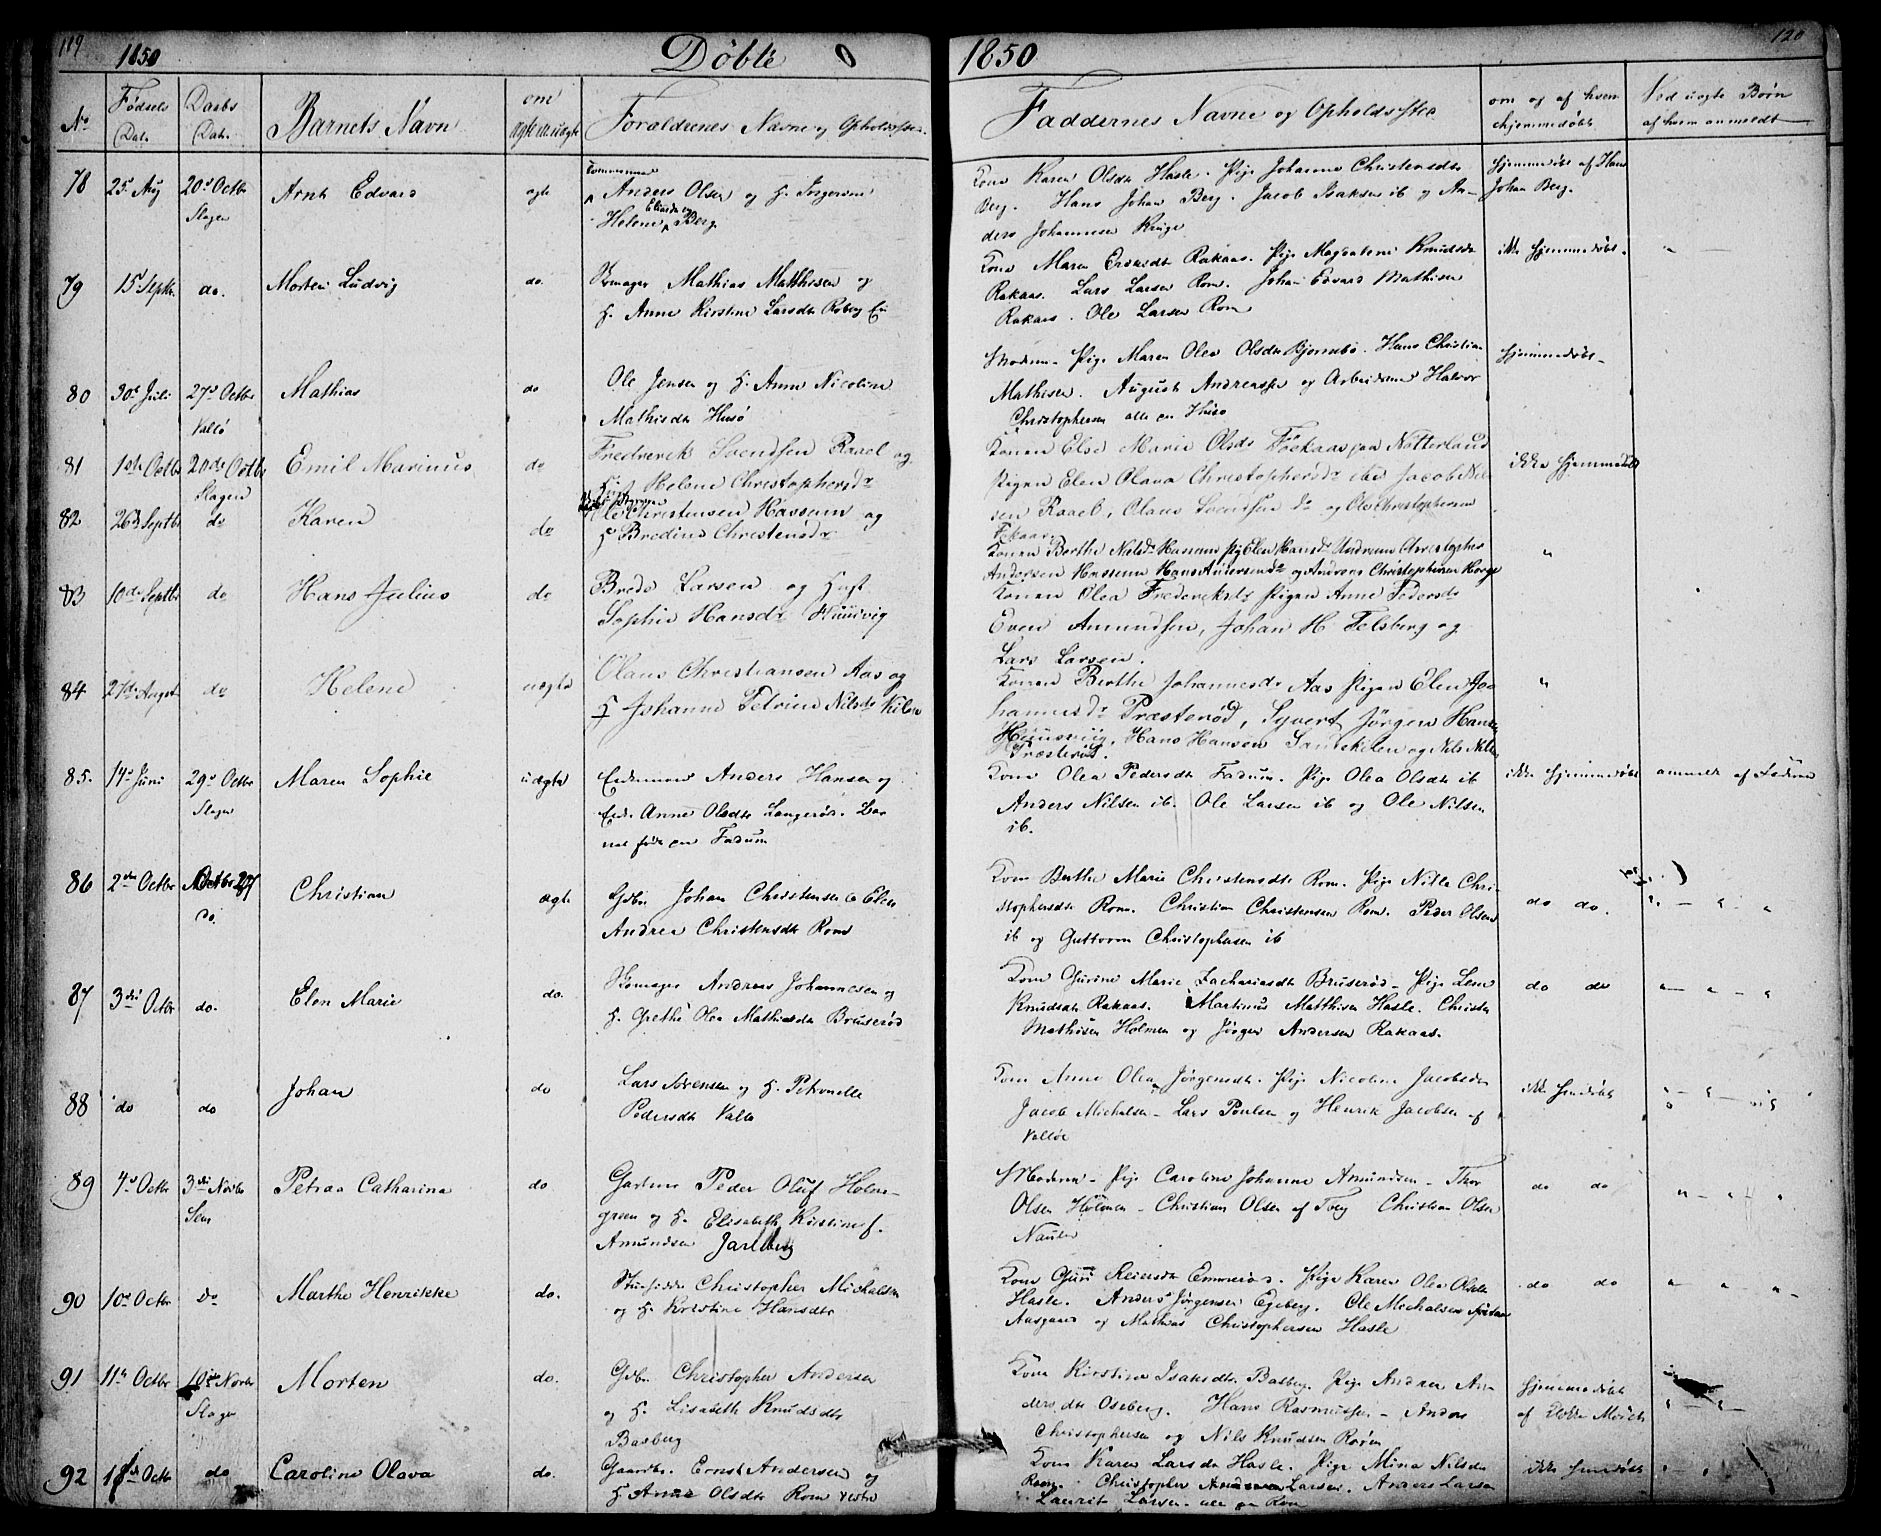 119
1850
Døbte
1850
120
No
Fødsels Dat.
Daabs Dat.
Barnets Navn
om ægte el. uægte
Forældrenes Navne og Opholdssted
Faddernes Navne og Opholdssted
om og af hvem hjemmedøbt
Ved uægte Børn af hvem anmeldt
78 25 Aug 20de Octbr Slagen
Arnt Edvard
ægte
Anders Olsen og H. Ingeranne
Helene Elinda og Berg
Kone Karen Olsdtr Hasle. Pige Johanne Christensdtr
Berg. Hans Johan Berg. Jacob Isaksen ib og An-
ders Johannesen Ringe
Hjemmedøbt af Hans
Johan Berg.
79 15 Septbr do.
Morten Ludvig
do.
Skomager Mathias Mathisen og
H. Anne Kirstine Larsdtr Roberg Eie
Kone Maren Ersdtr Rakaas. Pige Magdalene Knudsdtr
Rakaas. Lars Larsen Rom. Johan Edvard Mathisen
Rakaas. Ole Larsen Rom
ikke hjemmedøbt.
80 30te Juli 27de Octbr Vallø
Mathias
do
Ole Jensen og H. Anne Nicoline
Mathisdtr Husø
Moderen. Pige Maren Olea Olsdtr Bjornebo. Hans Christian
Mathisen. August Andreassen og Arbeidsm Halvor
Christophersen alle paa Husø
Hjemmedøbt.
81 1ste Octbr 20de Octbr Slagen
Emil Marinus
do
Frederik Svendsen Raael og
H. Helene Christophersdr
Konen Else Marie Olsdr Føekaas paa Nøtterland
Pigen Elen Olava Christophersdr ibd Jacob Niel
sen Raael, Olaus Svendsen do og Ole Christophersen
Fekaas
ikke hjemmedøbt
82 26de Septbr do
Karen
do
Ole Christensen Hassum og
H Bredine Christensdr
Konen Berthe Nielsdr Hassum Pig Elen Hansdr Undrum Christopher
Andersen Hassum Hans Andersen do og Andreas Christophersen Korge
"
83 10de Septbr do
Hans Julius
do
Brede Larsen og Hust
Sophie Hansdr Huusvig
Konen Olea Frederiksdr Pigen Anne Pedersdr
Even Amundsen, Johan H. Felsberg og
Lars Larsen.
84 27de August do
Helene
uægte
Olaus Christiansen Aas og
F Johanne Petrine Nilsdr Kilen
Konen Berthe Johannesdr Aas Pigen Elen Jo
hannesdr Præsterød, Syvert Jørgen Hansen
Huusvig, Hans Hansen Sandekilen og Nils Nilsen
Præsterød.
"
85. 14de Juni 29de Octbr Slagen
Maren Sophie
uægte
Enkemand Anders Hansen og
Enke Anne Olsdtr Langerød. Bar
net født paa Fadum
Kone Olea Pedersdtr Fadum. Pige Olea Olsdtr ib
Anders Nilsen ib. Ole Larsen ib og Ole Nilsen
ib.
ikke hjemmedøbt
anmeldt af Faderen
86 2den Octbr Octbr 27 do.
Christian
ægte
Gdbr. Johan Christensen & Elen
Andrea Christensdtr Rom
Kone Berthe Marie Christensdtr Rom. Pige Nille Chri-
stophersdtr Rom. Christian Christensen Rom. Peder Olsen
ib og Guttorm Christophersen ib
do do.
87 3die Octbr do.
Elen Marie
do.
Skomager Andreas Johannesen og
H. Grethe Olea Mathisdtr Bruserød
Kone Gurine Marie Zachariasdtr Bruserød. Pige Lene
Knudsdtr Rakaas. Martinus Matthisen Hasle. Christen
Mathisen Holmen og Jørgen Andersen Rakaas.
do do
88 do do
Johan
do
Lars Sørensen og H. Petronelle
Pedersdtr Vallø
Kone Anne Olea Jørgensdtr. Pige Nicoline Jacobsdtr
Jacob Michalsen. Lars Poulsen og Henrik Jacobsen af
Valløe
ikke hjmdøbt
89 4de Octbr 3die Novbr Sem
Petraa Catharina
do
Gartner Peder Oluf Holm-
green og H. Elisabeth Kirstine f.
Amundsen Jarlsberg
Moderen. Pige Caroline Johanne Amundsen. Thor
Olsen Holmen. Christian Olsen af Tbrg Christian Olsen
Nauen
do do
90 10de Octbr do
Marthe Henrikke
do.
Huusfidder Christopher Michalsen
og H. Kristine Hansdtr
Kone Guri Reiersdtr Emmerød. Pige Karen Olea Olsdtr
Hasle. Anders Jørgensen Egeberg. Ole Michalsen
Aasgaard og Mathias Christophersen Hasle
do do
91 11te Octbr 10de Novbr Slagen
Morten
do.
Gdbr. Christopher Andersen
og H. Lisabeth Knudsdtr
Basberg
Kone Kirstine Isaksdtr Basberg. Pige Andrea An-
dersdtr Oseberg. Hans Rasmussen. Anders
Christophersen og Nils Knudsen Roøen
hjemmedøbt
af
92 18de Octbr do
Caroline Olava
do.
Gaardbr. Ernst Andersen og
H. Anne Olsdtr Rom vestre
Kone Karen Larsdtr Hasle. Pige Mina Nilsdtr
Rom. Christopher Larsen. Anders Larsen
Laurits Larsen. alle paa Rom
ikke hjmdøbt